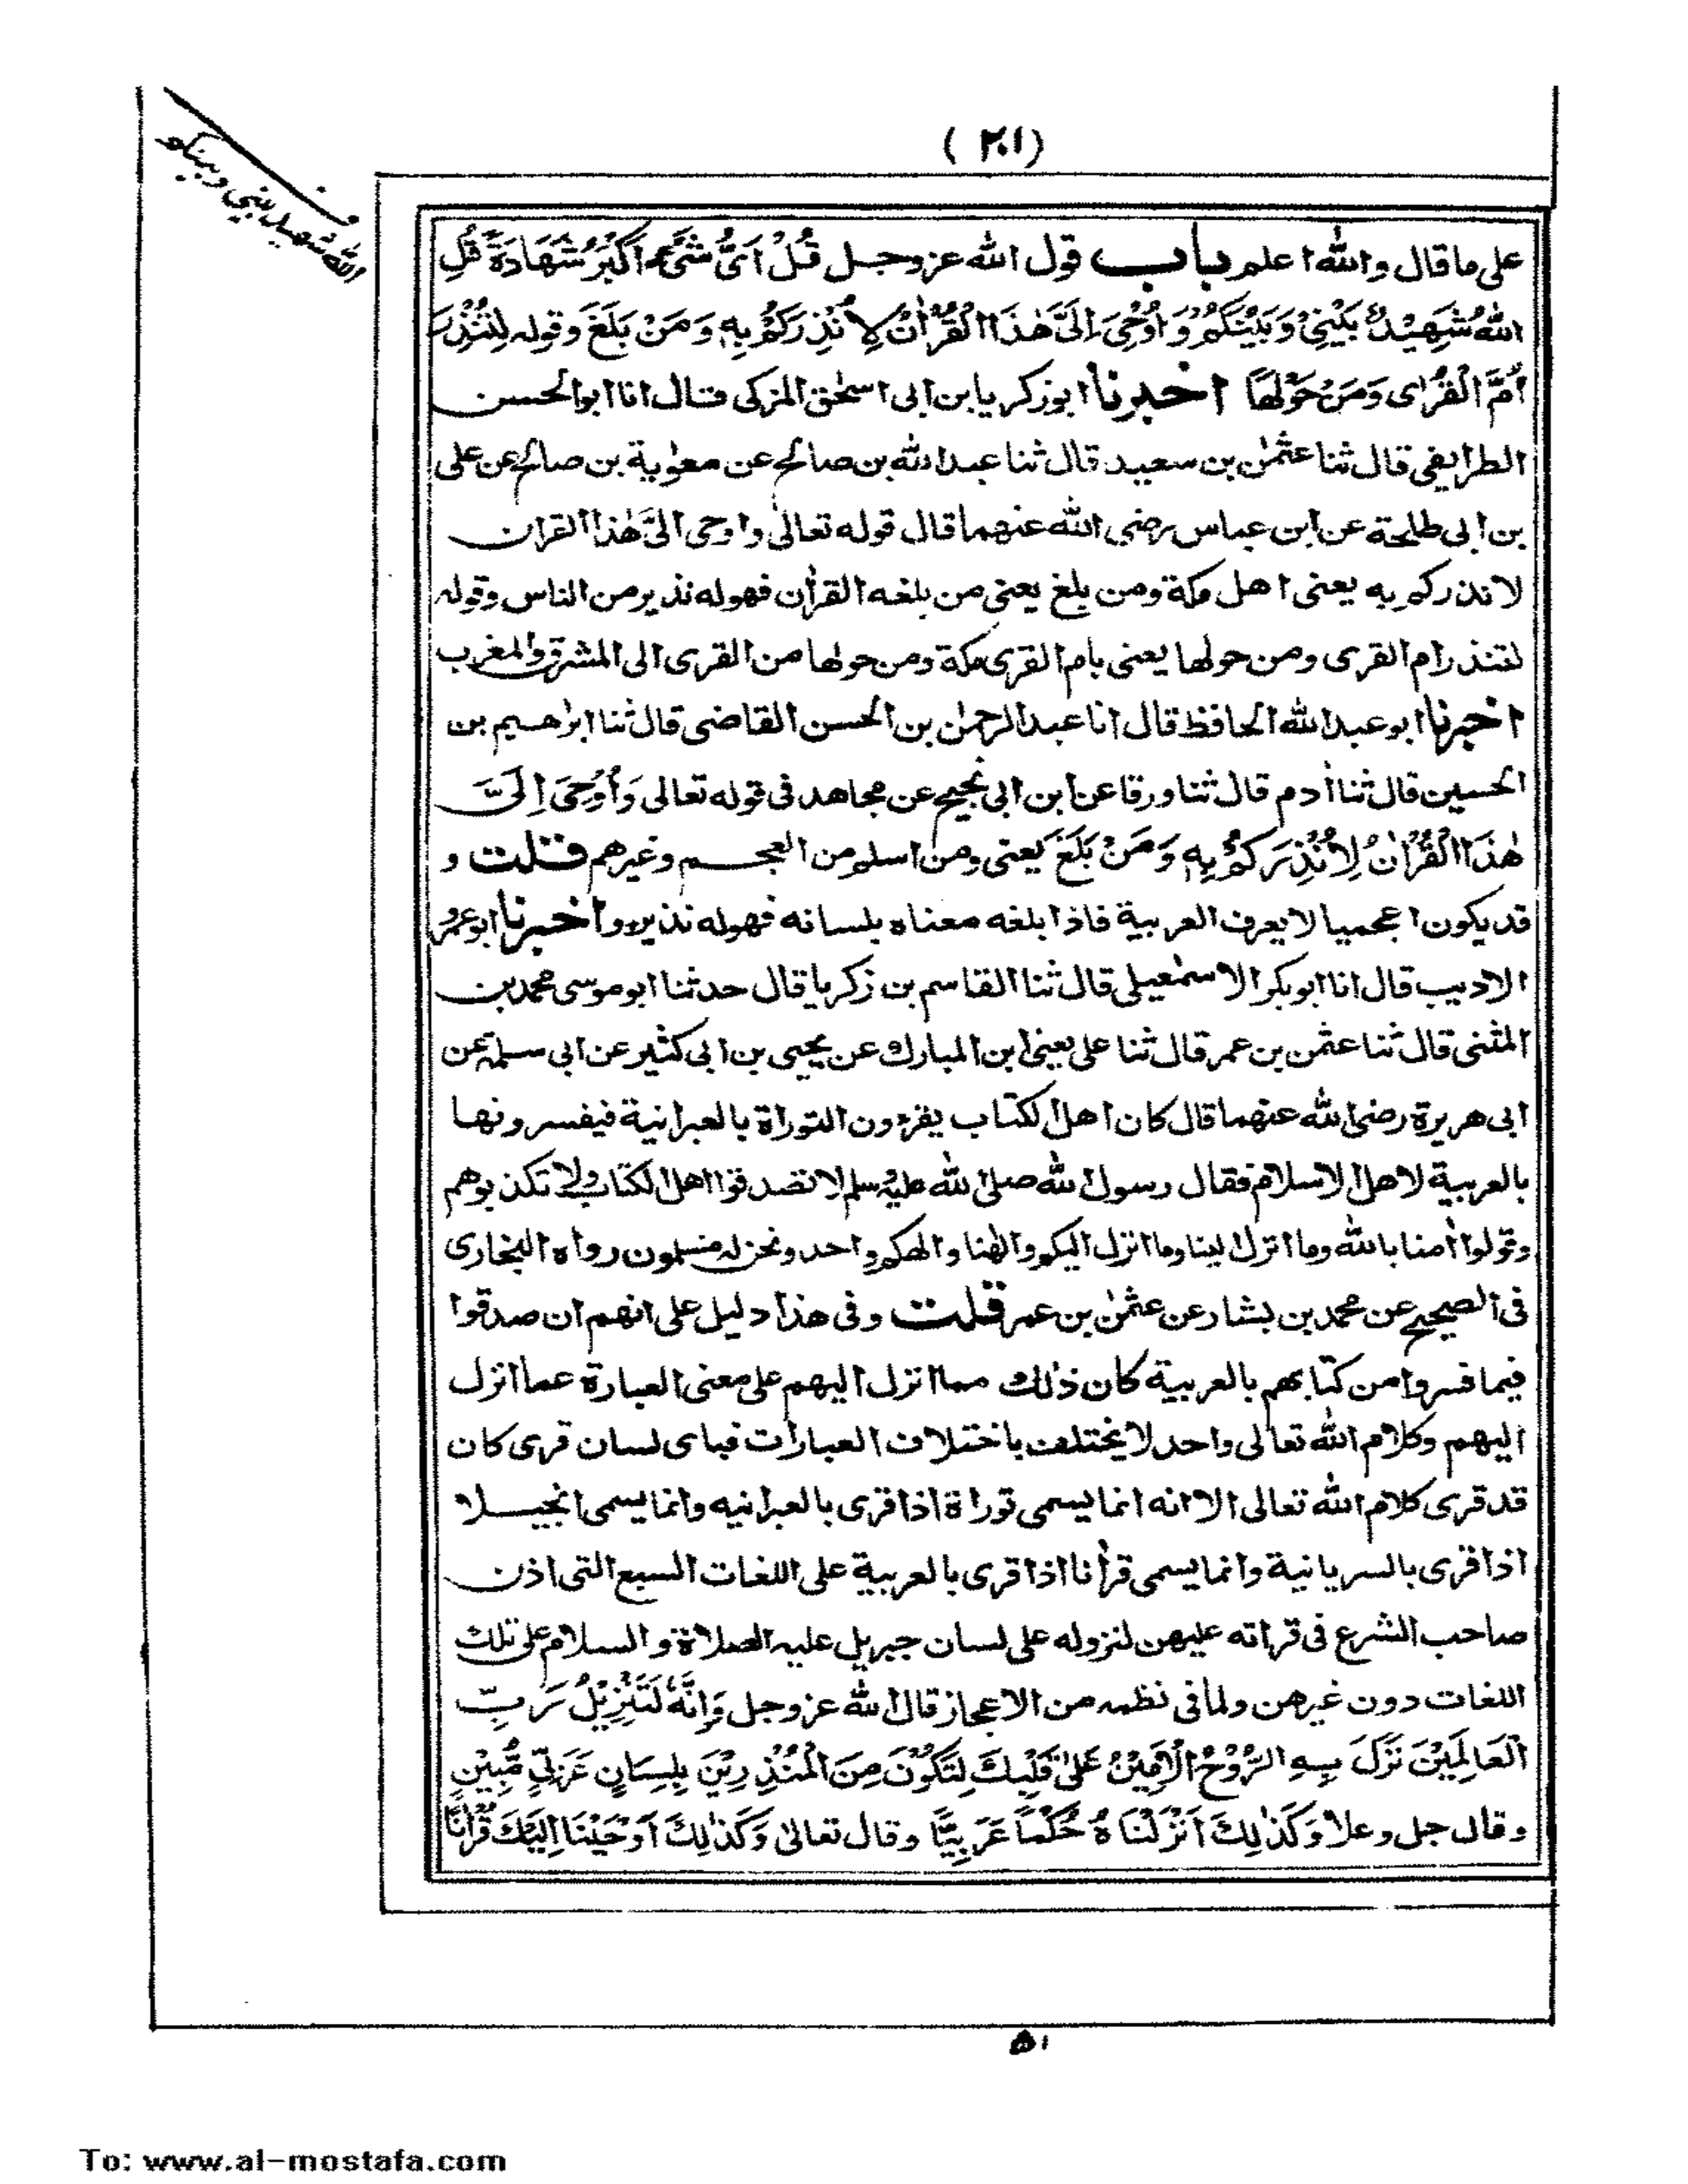 (٢٠١)
الله شهيد بيني وبينكم
على ما قال والله اعلم باب قول الله عزوجل قُلْ اَىُّ شَىْءٍ اَكْبَرُ شَهَادَةً قُلِ
اللهُ شَهِيْدٌ بَيْنِىْ وَبَيْنَكُمْ وَاُوْحِىَ اِلَىَّ هٰذَا الْقُرْاٰنُ لِاُنْذِرَكُمْ بِهٖ وَمَنْ بَلَغَ وقوله لِتُنْذِرَ
اُمَّ الْقُرٰى وَمَنْ حَوْلَهَا اخبرنا ابوزكريا بن ابى اسحٰق المزكى قال انا ابوالحسن
الطرايفى قال ثنا عثمٰن بن سعيد قال ثنا عبدالله بن صالح عن معٰوية بن صالح عن على
بن ابى طلحة عن ابن عباس رضى الله عنهما قال قوله تعالىٰ واوحى الىَّ هٰذا القران
لانذركم به يعنى اهل مكة ومن بلغ يعنى من بلغه القراٰن فهوله نذير من الناس وقوله
لتنذر ام القرى ومن حولها يعنى بام القرى مكة ومن حولها من القرى الى المشرق والمغرب
اخبرنا ابوعبدالله الحافظ قال انا عبدالرحمٰن بن الحسن القاضى قال ثنا ابراهيم بن
الحسين قال ثنا اٰدم قال ثنا ورقا عن ابن ابى نجيح عن مجاهد فى قوله تعالى وَاُوْحِىَ اِلَىَّ
هٰذَا الْقُرْاٰنُ لِاُنْذِرَكُمْ بِهٖ وَمَنْ بَلَغَ يعنى ومن اسلم من العجم وغيرهم قلت و
قد يكون اعجميا لا يعرف العربية فاذا بلغه معناه بلسانه فهوله نذير واخبرنا ابوعمرو
الاديب قال انا ابوبكر الاسمٰعيلى قال ثنا القاسم بن زكريا قال حدثنا ابوموسى محمد بن
المثنى قال ثنا عثمن بن عمر قال ثنا على يعنى ابن المبارك عن يحيى بن ابى كثير عن ابى سلمة عن
ابى هريرة رضى الله عنهما قال كان اهل الكتاب يقرءون التوراة بالعبرانية فيفسرونها
بالعربية لاهل الاسلام فقال رسول الله صلى الله عليه وسلم لا تصدقوا اهل الكتاب ولا تكذبوهم
وقولوا اٰمنا بالله وما انزل الينا وما انزل اليكم والٰهنا والهكم واحد ونحن له مسلمون رواه البخارى
فى الصحيح عن محمد بن بشار عن عثمٰن بن عمر قلت وفى هذا دليل على انهم ان صدقوا
فيما فسروا من كتابهم بالعربية كان ذٰلك مما انزل اليهم على معنى العبارة عما انزل
اليهم وكلام الله تعالى واحد لا يختلف باختلاف العبارات فباى لسان قرى كان
قد قرى كلام الله تعالى الا انه انما يسمى توراة اذا قرى بالعبرانيه وانما يسمى انجيلا
اذا قرى بالسريانية وانما يسمى قراٰنا اذا قرى بالعربية على اللغات السبع التى اذن
صاحب الشرع فى قراته عليهن لنزوله على لسان جبريل عليه الصلاة و السلام على تلك
اللغات دون غيرهن ولما فى نظمه من الاعجاز قال الله عزوجل وَاِنَّهٗ لَتَنْزِيْلُ رَبِّ
الْعَالَمِيْنَ نَزَلَ بِهِ الرُّوْحُ الْاَمِيْنُ عَلىٰ قَلْبِكَ لِتَكُوْنَ مِنَ الْمُنْذِرِيْنَ بِلِسَانٍ عَرَبِىٍّ مُّبِيْنٍ
وقال جل وعلا وَكَذٰلِكَ اَنْزَلْنَاهُ حُكْمًا عَرَبِيًّا وقال تعالىٰ وَكَذٰلِكَ اَوْحَيْنَا اِلَيْكَ قُرْاٰنًا
٥١
To: www.al-mostafa.com